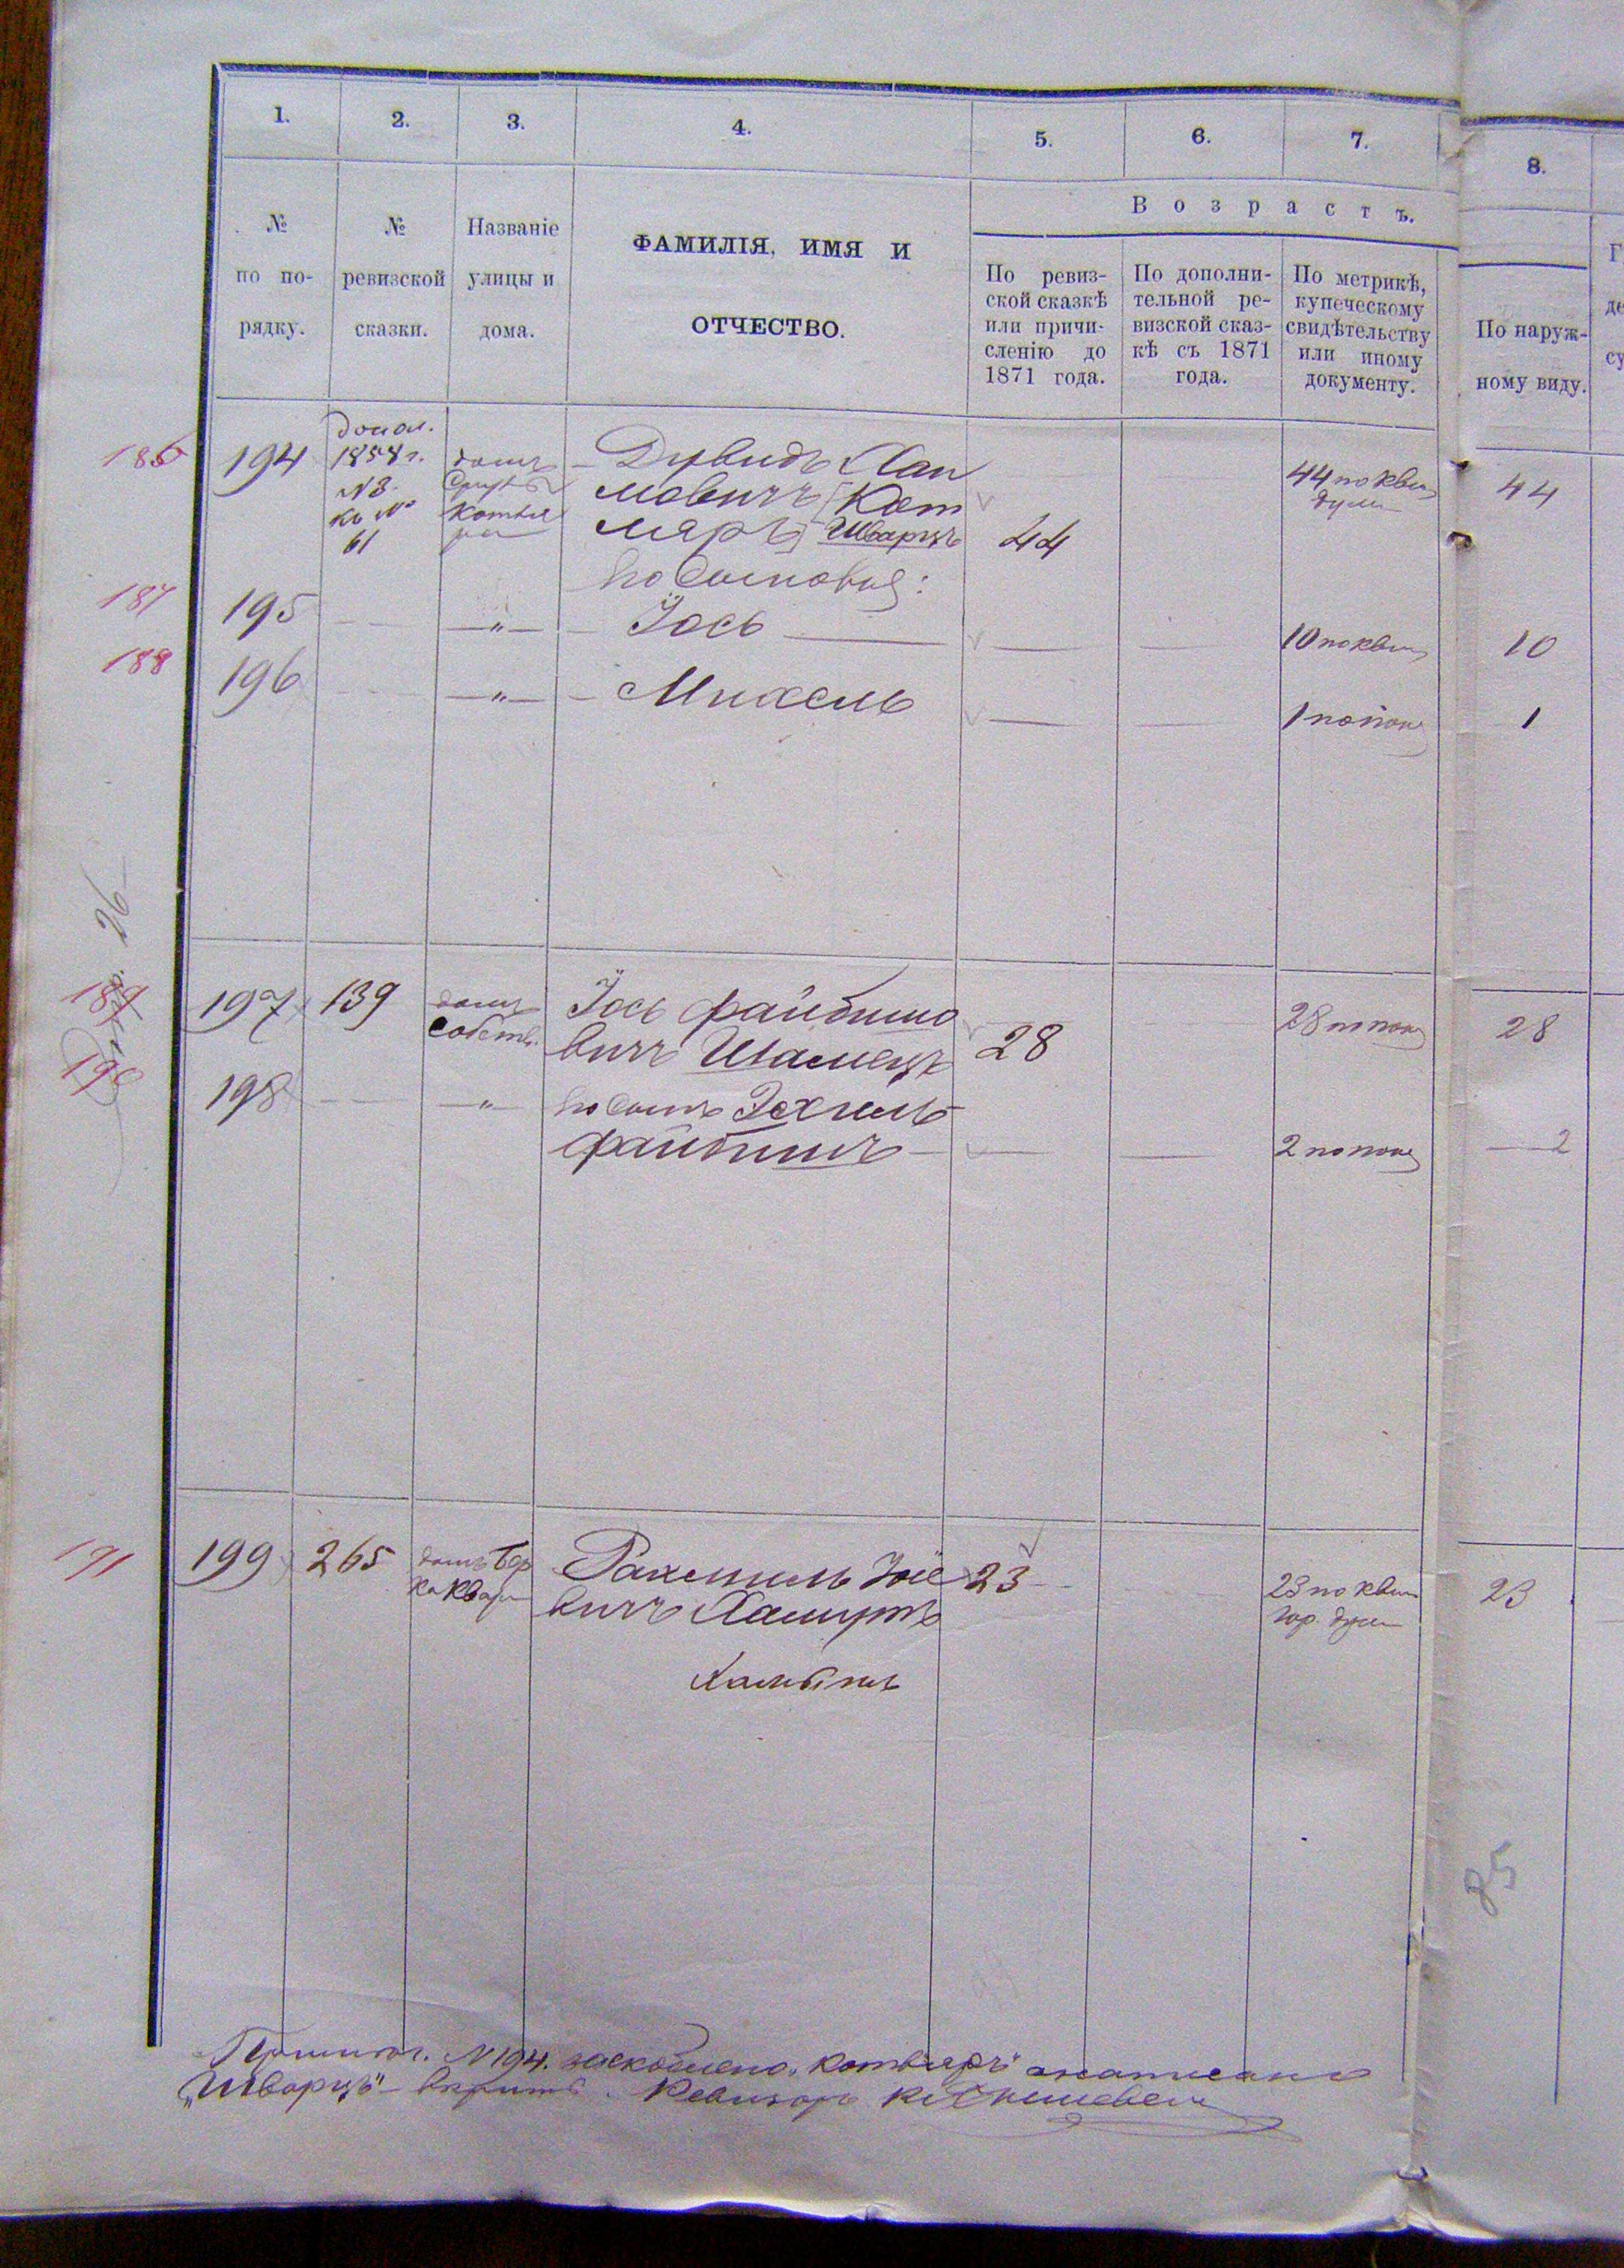 1. 2. 3. 4. 5. 6. 7. 8.
№ по по- рядку.
№ ревизской сказки.
Названіе улицы и дома.
ФАМИЛІЯ, ИМЯ И
ОТЧЕСТВО.
Возрастъ.
По ревиз-
ской сказкѣ
или причи-
сленію до
1871 года.
По дополни-
тельной ре-
визской сказ-
кѣ съ 1871
года.
По метрикѣ,
купеческому
свидѣтельству
или иному
документу.
По наруж-
ному виду.
186 194
1858 г.
№ 3.
къ №
61
домъ
Дувидъ Хаи
мовичъ [Кот
ляръ] Шварцъ
44
44 по квит
думы
44
его сыновья:
187 195 —"— Іось
10 по квит
10
188 196 —"— Михель
1 по пок
1
189 197 139
домъ
собств.
Іось Файбишо
вичъ Шамецъ
28
28 по пок
28
190 198 —"—
его сынъ Эхиель
Файбишъ
2 по пок
2
191 199 265
домъ Бер
ка Квар
Рахмиль Іос
вичъ Хамутъ
23
23 по квит
гор. думы
23
85
№ 194. заскоблено „Котляръ" а написано
„Шварцъ" вѣрить. Ревизоръ